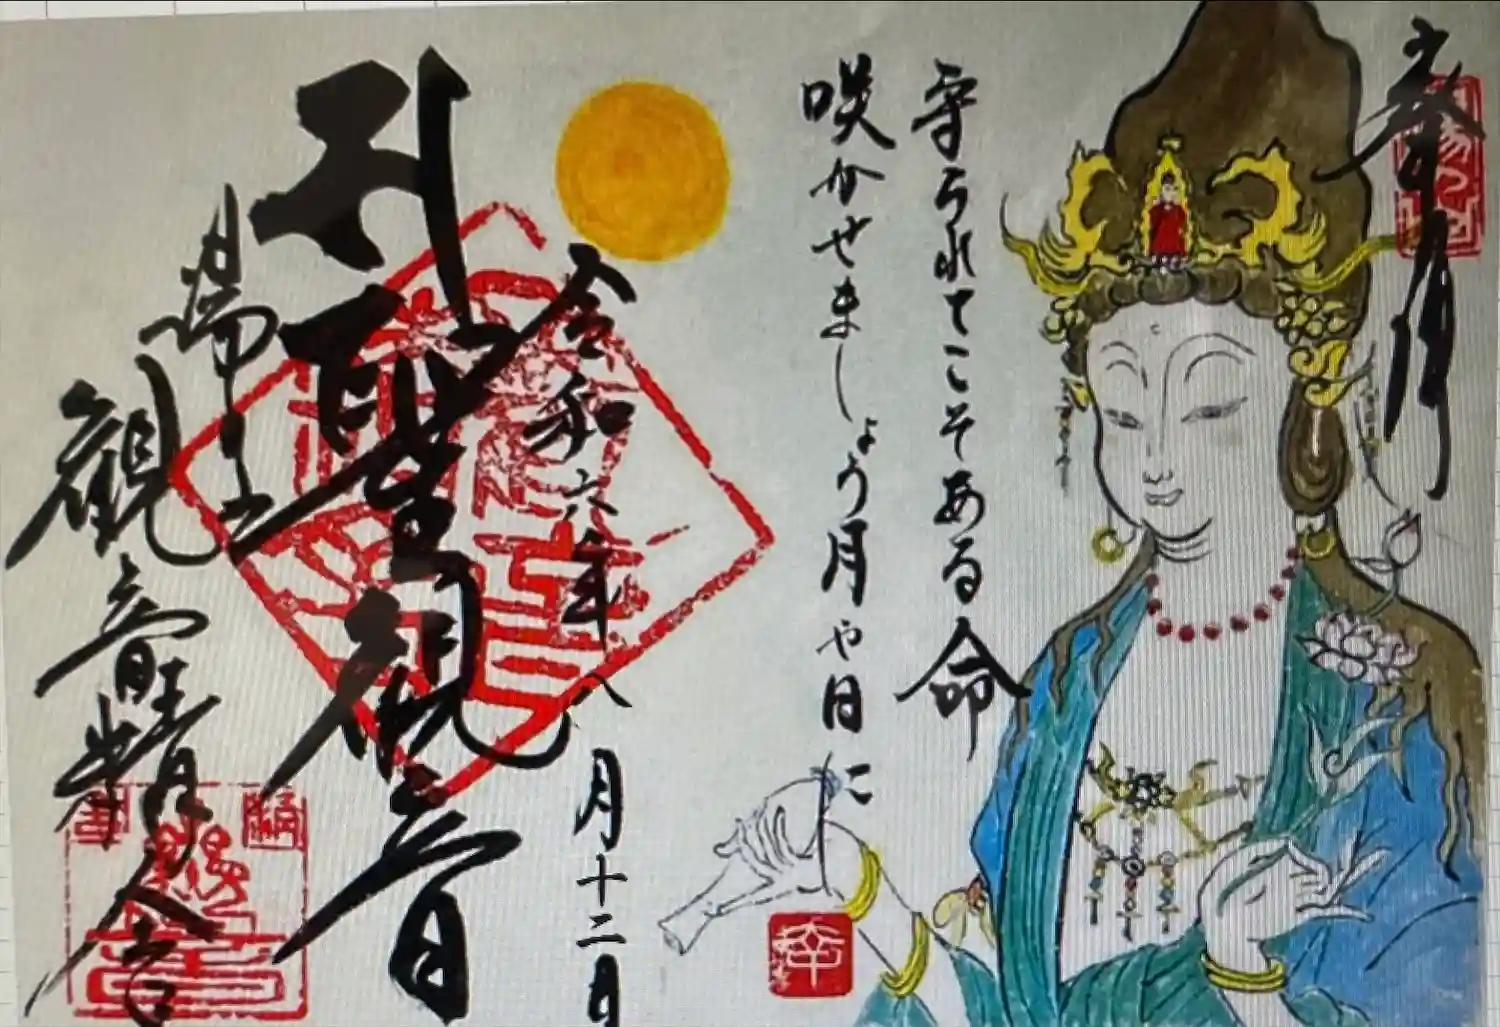 奉拝
守られてこそある命
咲かせましょう月や日に
令和六年八月十二日
聖観音
観音精舎
幸